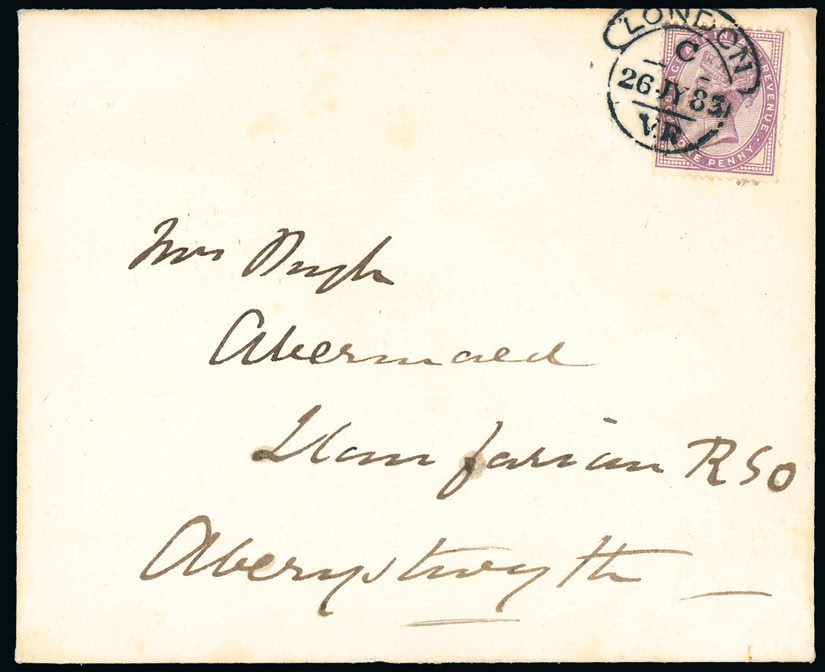 LONDON
C
26 JY 85
V.R
REVENUE
ONE PENNY
Mrs Pugh
Abermaed
Llanfarian RSO
Aberystwyth